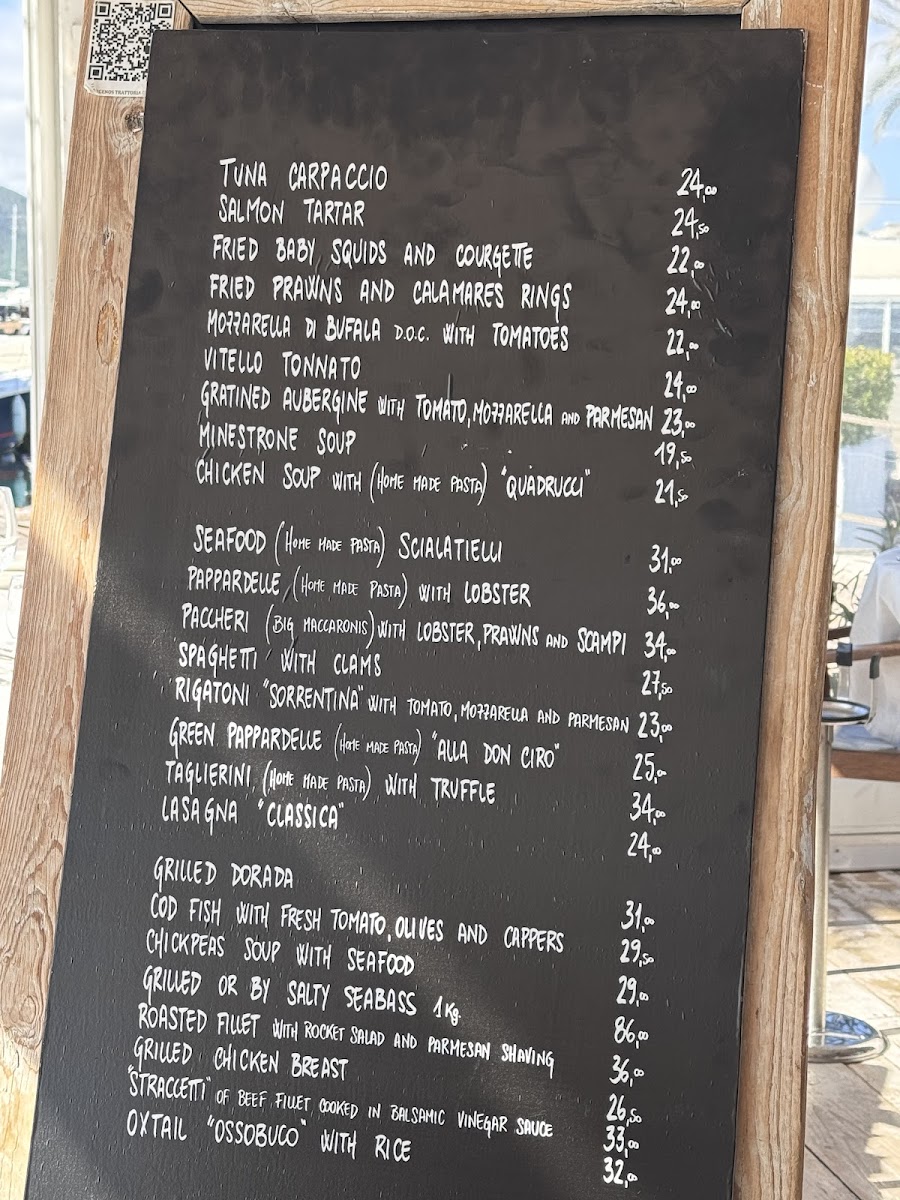 CENOS TRATTORIA
TUNA CARPACCIO 24,00
SALMON TARTAR 24,50
FRIED BABY SQUIDS AND COURGETTE 22,00
FRIED PRAWNS AND CALAMARES RINGS 24,00
MOZZARELLA DI BUFALA D.O.C. WITH TOMATOES 22,00
VITELLO TONNATO 24,00
GRATINED AUBERGINE WITH TOMATO, MOZZARELLA AND PARMESAN 23,00
MINESTRONE SOUP 19,50
CHICKEN SOUP WITH (HOME MADE PASTA) "QUADRUCCI" 21,50
SEAFOOD (HOME MADE PASTA) SCIALATIELLI 31,00
PAPPARDELLE (HOME MADE PASTA) WITH LOBSTER 36,00
PACCHERI (BIG MACCARONIS) WITH LOBSTER, PRAWNS AND SCAMPI 34,00
SPAGHETTI WITH CLAMS 27,50
RIGATONI "SORRENTINA" WITH TOMATO, MOZZARELLA AND PARMESAN 23,00
GREEN PAPPARDELLE (HOME MADE PASTA) "ALLA DON CIRO" 25,00
TAGLIERINI (HOME MADE PASTA) WITH TRUFFLE 34,00
LASAGNA "CLASSICA" 24,00
GRILLED DORADA 31,00
COD FISH WITH FRESH TOMATO, OLIVES AND CAPPERS 29,50
CHICKPEAS SOUP WITH SEAFOOD 29,00
GRILLED OR BY SALTY SEABASS 1Kg. 86,00
ROASTED FILLET WITH ROCKET SALAD AND PARMESAN SHAVING 36,00
GRILLED CHICKEN BREAST 26,50
"STRACCETTI" OF BEEF FILLET COOKED IN BALSAMIC VINEGAR SAUCE 33,00
OXTAIL "OSSOBUCO" WITH RICE 32,00